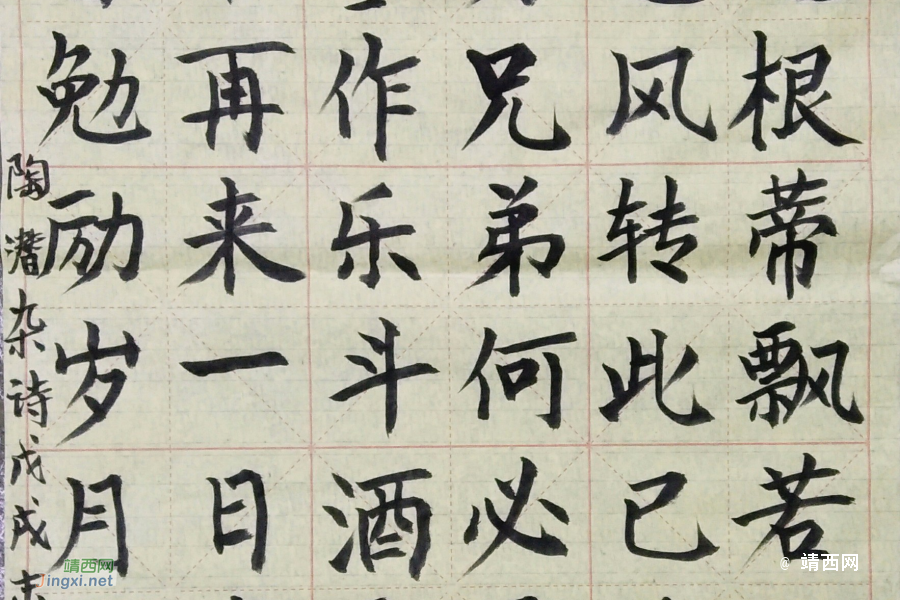 根蒂飘若
风转此已
兄弟何必
作乐斗酒
再来一日
勉励岁月
陶潜杂诗戊戌
靖西网
Jingxi.net
@ 靖西网